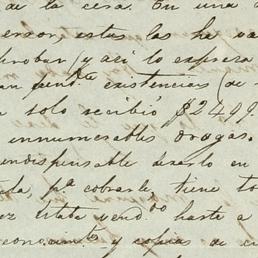 de la cera. En una
error, estas las ha
probar (y así lo espera
pend.te existencias (de
solo recibió $2499
innumerables drogas.
indispensable dearlo en
p.a cobrarle, tiene to
estaba vend.do hasta a
conocim.tos y copias de